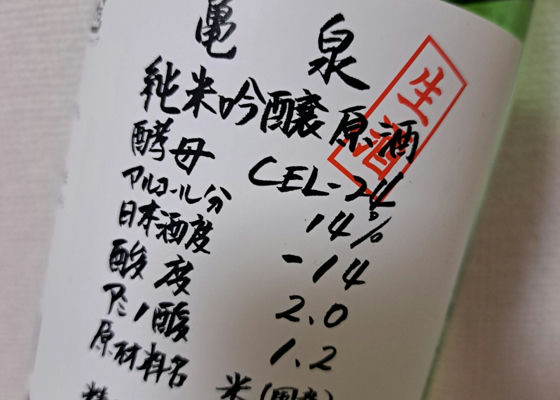 亀泉
純米吟醸原酒
生酒
酵母 CEL-24
アルコール分 14%
日本酒度 -14
酸度 2.0
アミノ酸 1.2
原材料名
米(国産)